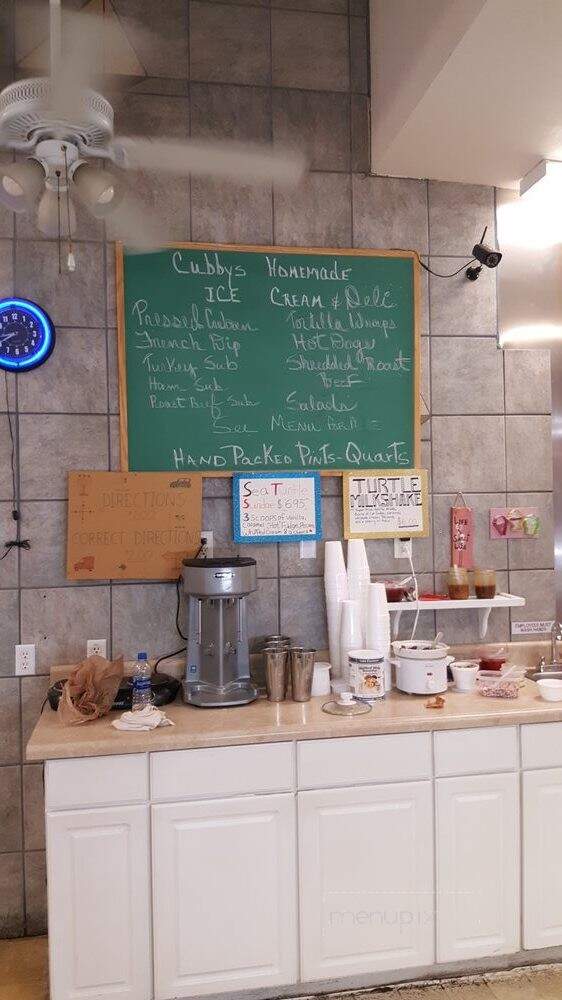 Cubbys Homemade
ICE Cream & Deli
Pressed Cuban
French Dip
Turkey Sub
Ham Sub
Roast Beef Sub
Tortilla Wraps
Hot Dogs
Shredded Roast
Beef
Salads
See Menu For
Hand Packed Pints-Quarts
DIRECTIONS
CORRECT DIRECTIONS
Sea Turtle
Sundae $6.95
3 Scoops of Vanilla,
Caramel, Hot Fudge, Pecans
TURTLE
MILKSHAKE
EMPLOYEES MUST
WASH HANDS
menupix